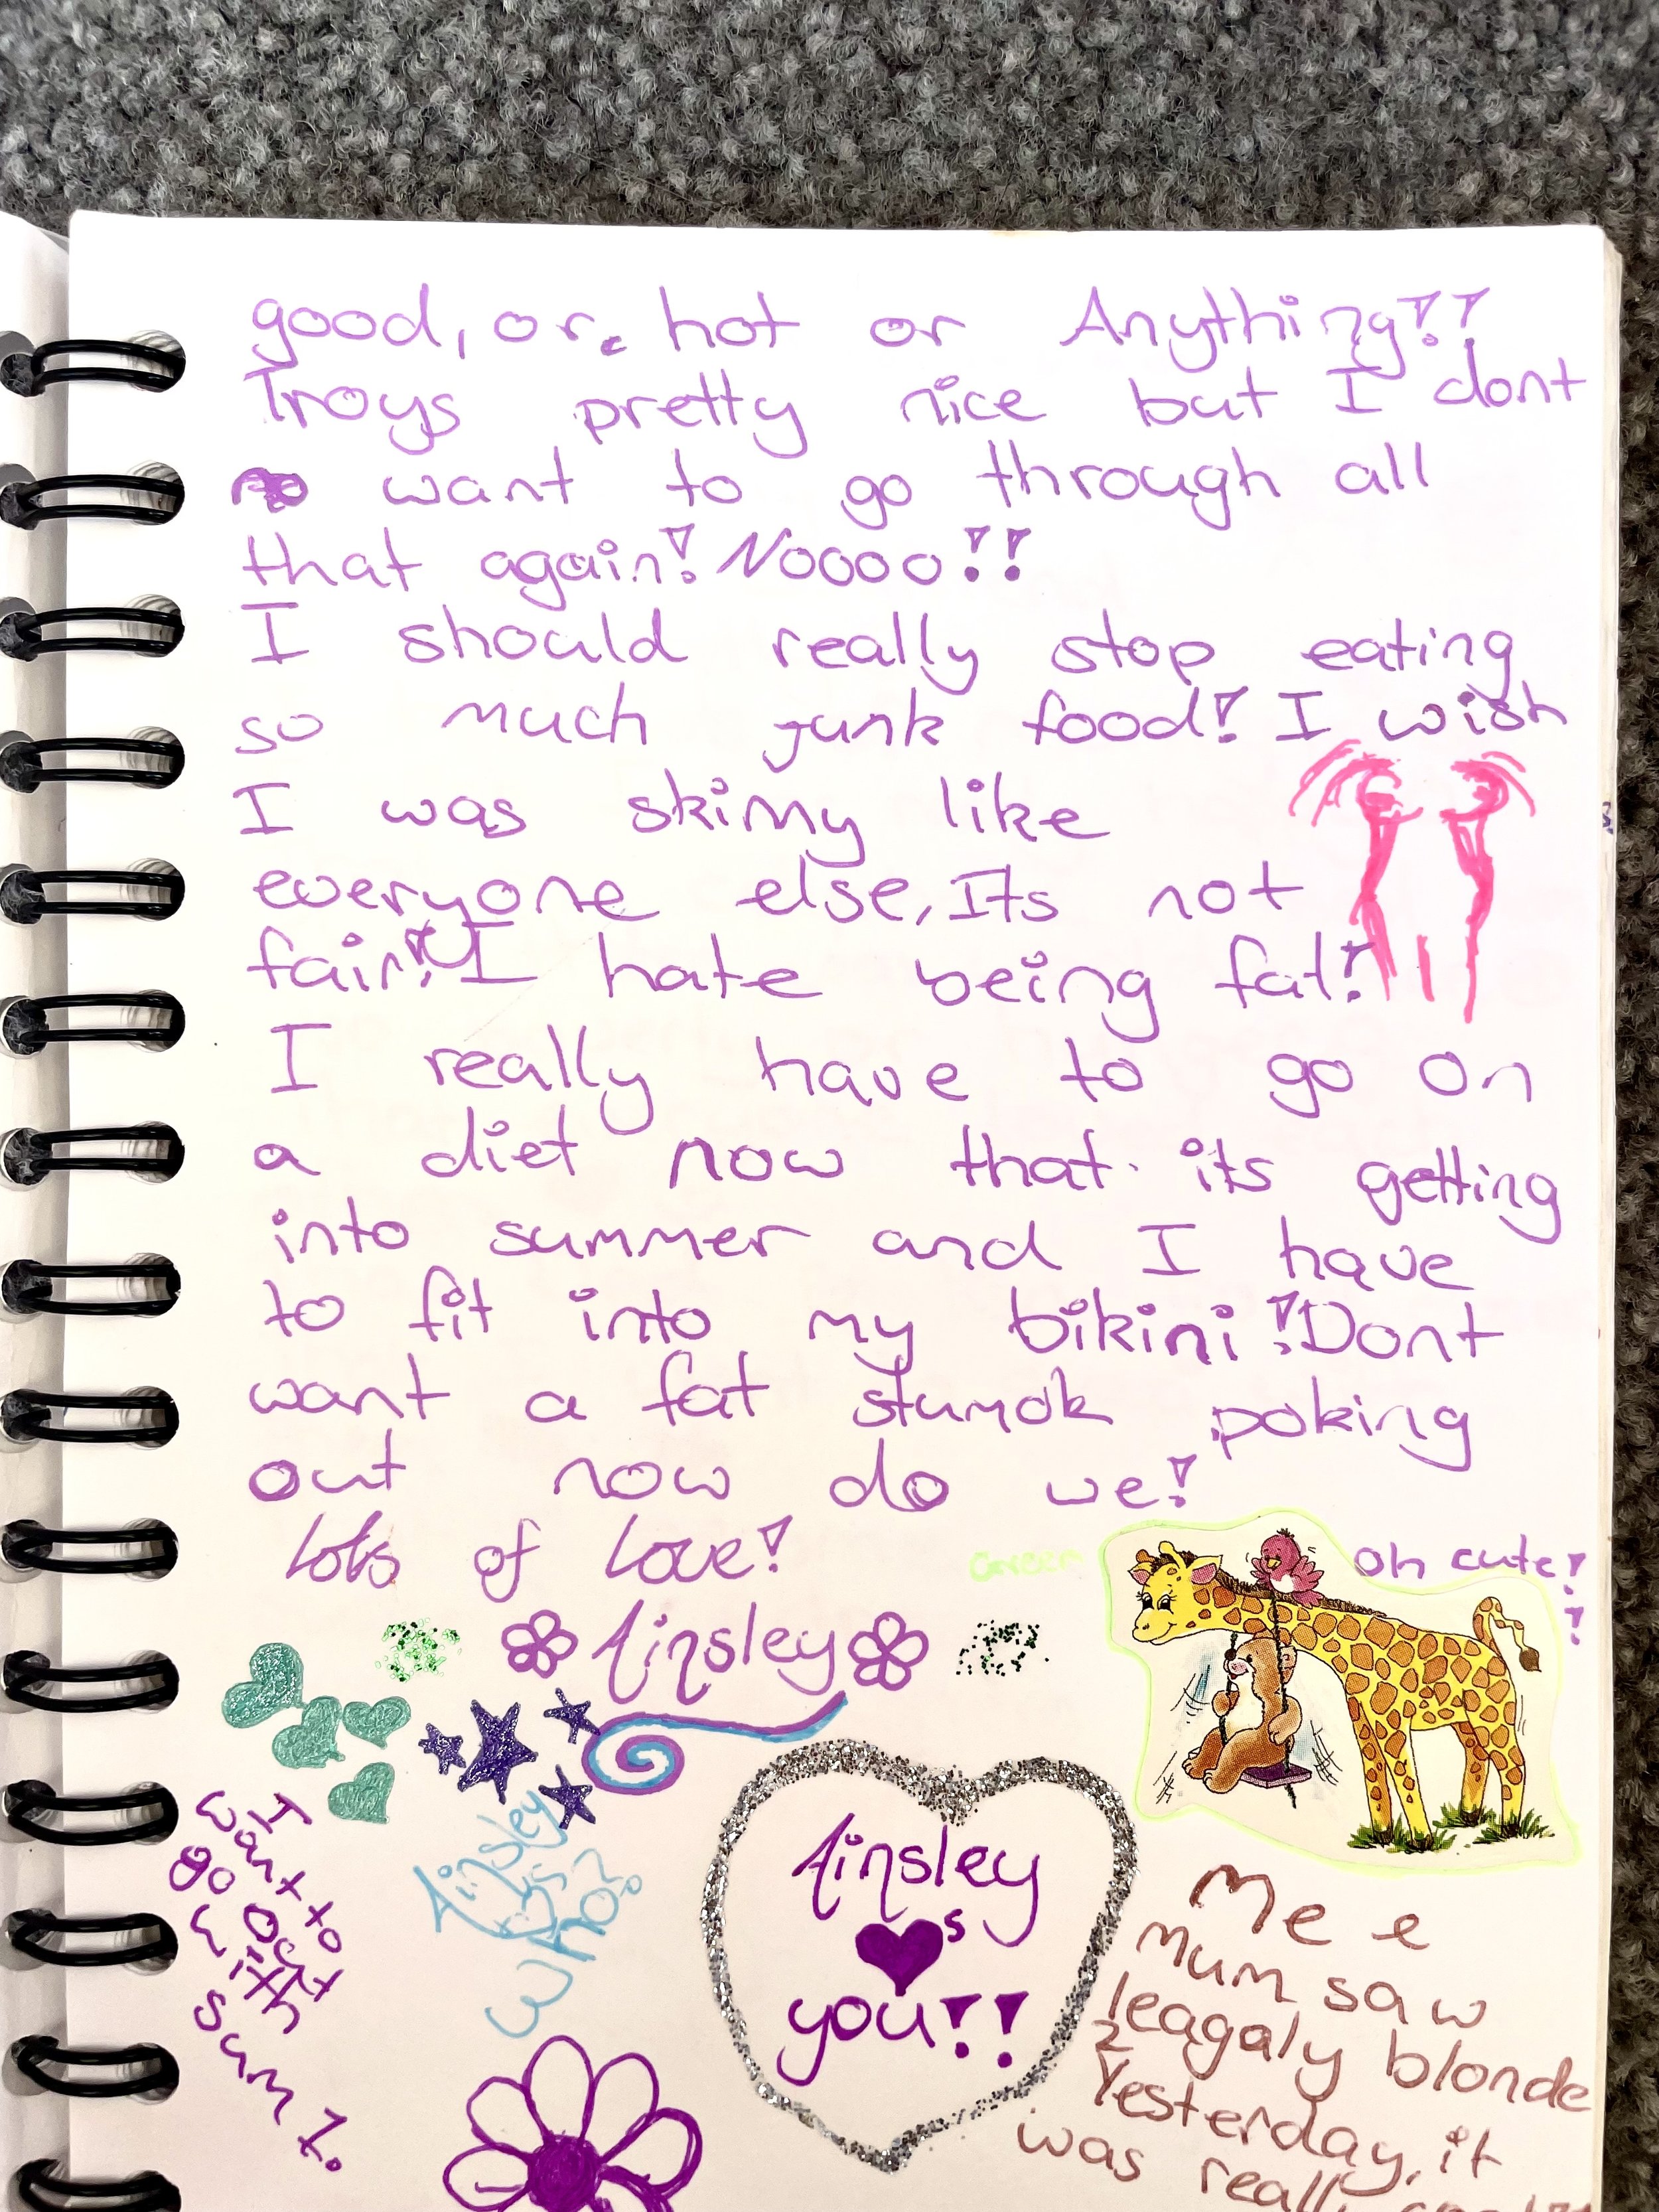 good, or hot or Anything!!
Troys pretty nice but I dont
want to go through all
that again! Noooo!!
I should really stop eating
so much junk food! I wish
I was skinny like
everyone else, Its not
fair! I hate being fat!
I really have to go on
a diet now that its getting
into summer and I have
to fit into my bikini! Dont
want a fat stumok poking
out now do we!
lots of love!
Green
oh cute!!
Ainsley
I
want to
go out
with
sum 1.
Ainsley
Who?
Ainsley
s
you!!
Me e
Mum saw
leagaly blonde
2
Yesterday, it
was really